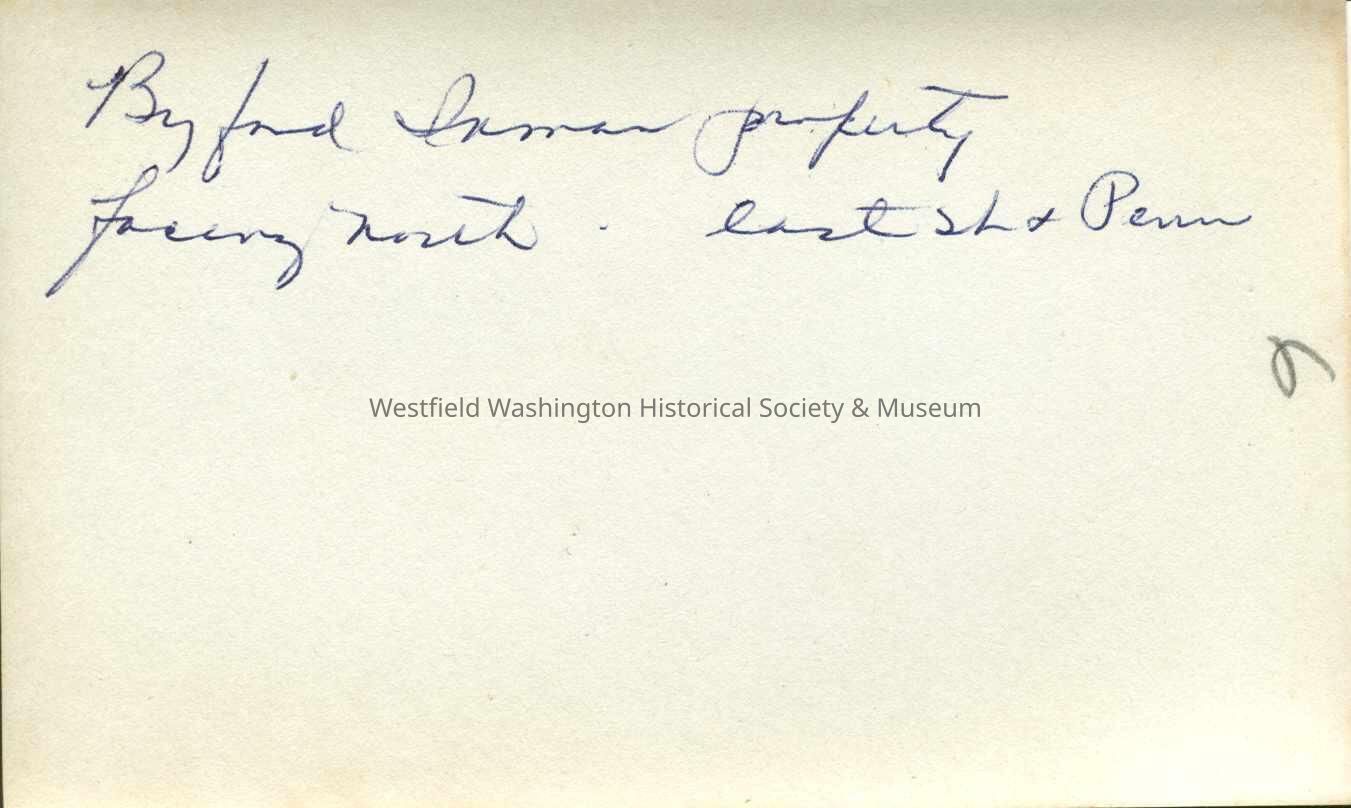 Byford Inman property
facing North . east St & Penn
Westfield Washington Historical Society & Museum